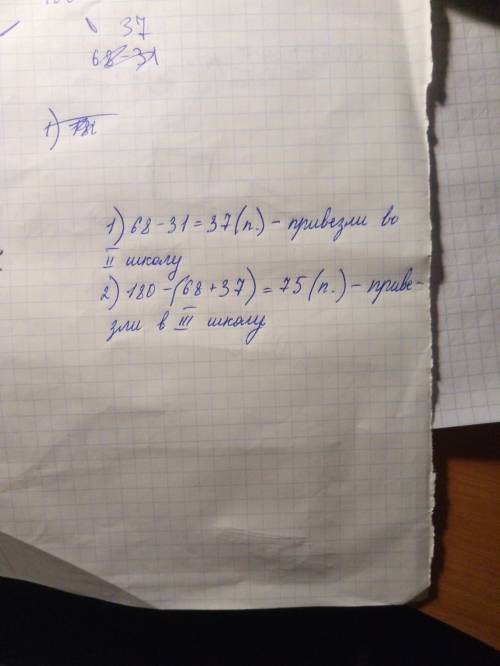 37
68-31
1)
1) 68-31=37(п.) - привезли во
II школу
2) 180-(68+37)=75(п.) - приве-
зли в III школу